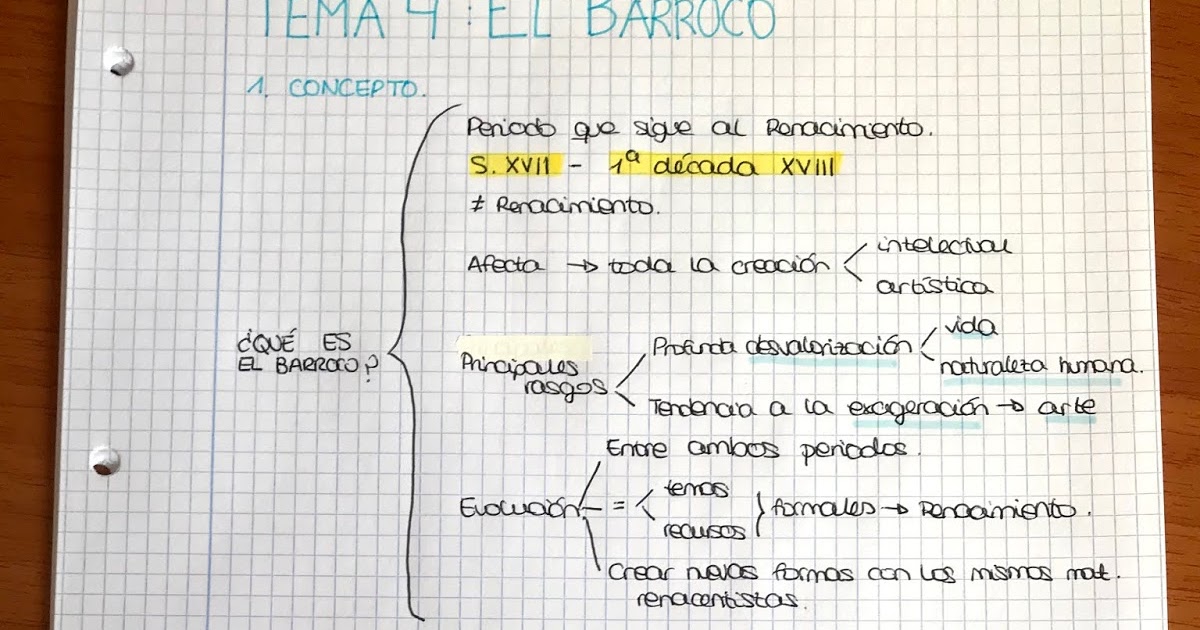 TEMA 4: EL BARROCO
1. CONCEPTO.
¿QUÉ ES
EL BARROCO?
Periodo que sigue al Renacimiento.
S. XVII - 1ª década XVIII
≠ Renacimiento.
Afecta → toda la creación
intelectual
artística
Principales
rasgos
Profunda desvalorización
vida
naturaleza humana.
Tendencia a la exageración → arte
Evolución
Entre ambos periodos.
=
temas
recursos
formales → Renacimiento.
Crear nuevas formas con los mismos mat.
renacentistas.